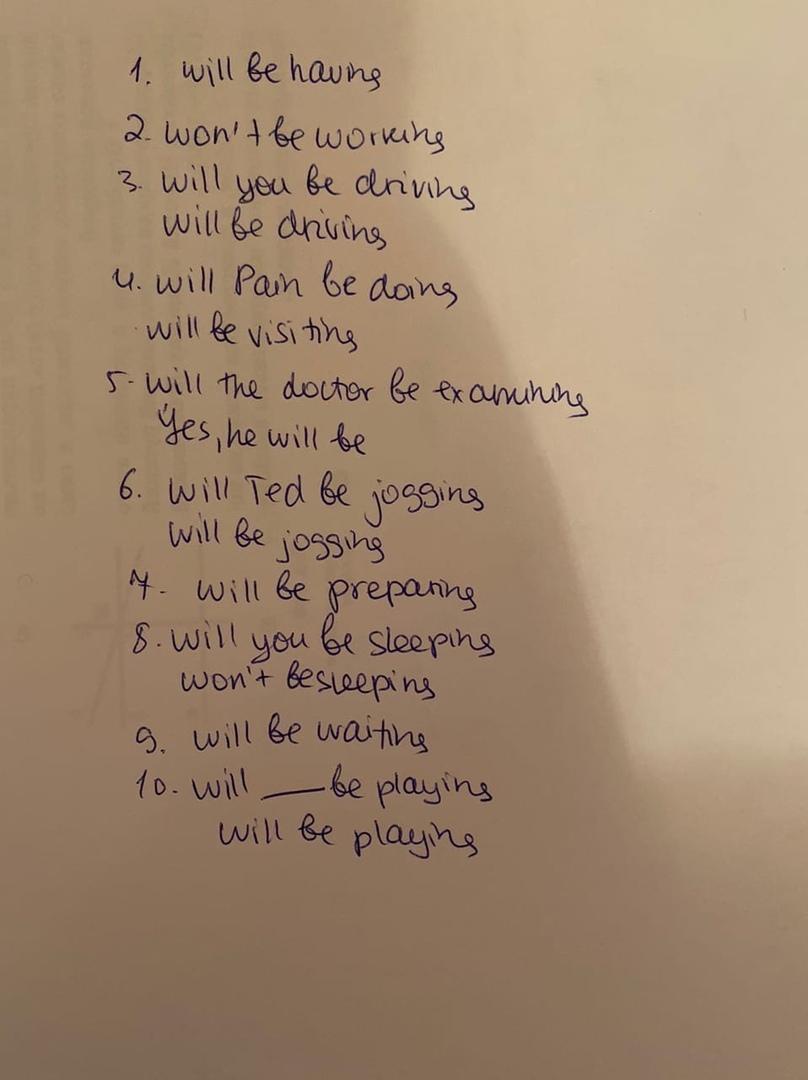 1. will be having
2. won't be working
3. will you be driving
will be driving
4. will Pam be doing
will be visiting
5. will the doctor be examining
Yes, he will be
6. will Ted be jogging
will be jogging
7. will be preparing
8. will you be sleeping
won't be sleeping
9. will be waiting
10. will ___ be playing
will be playing